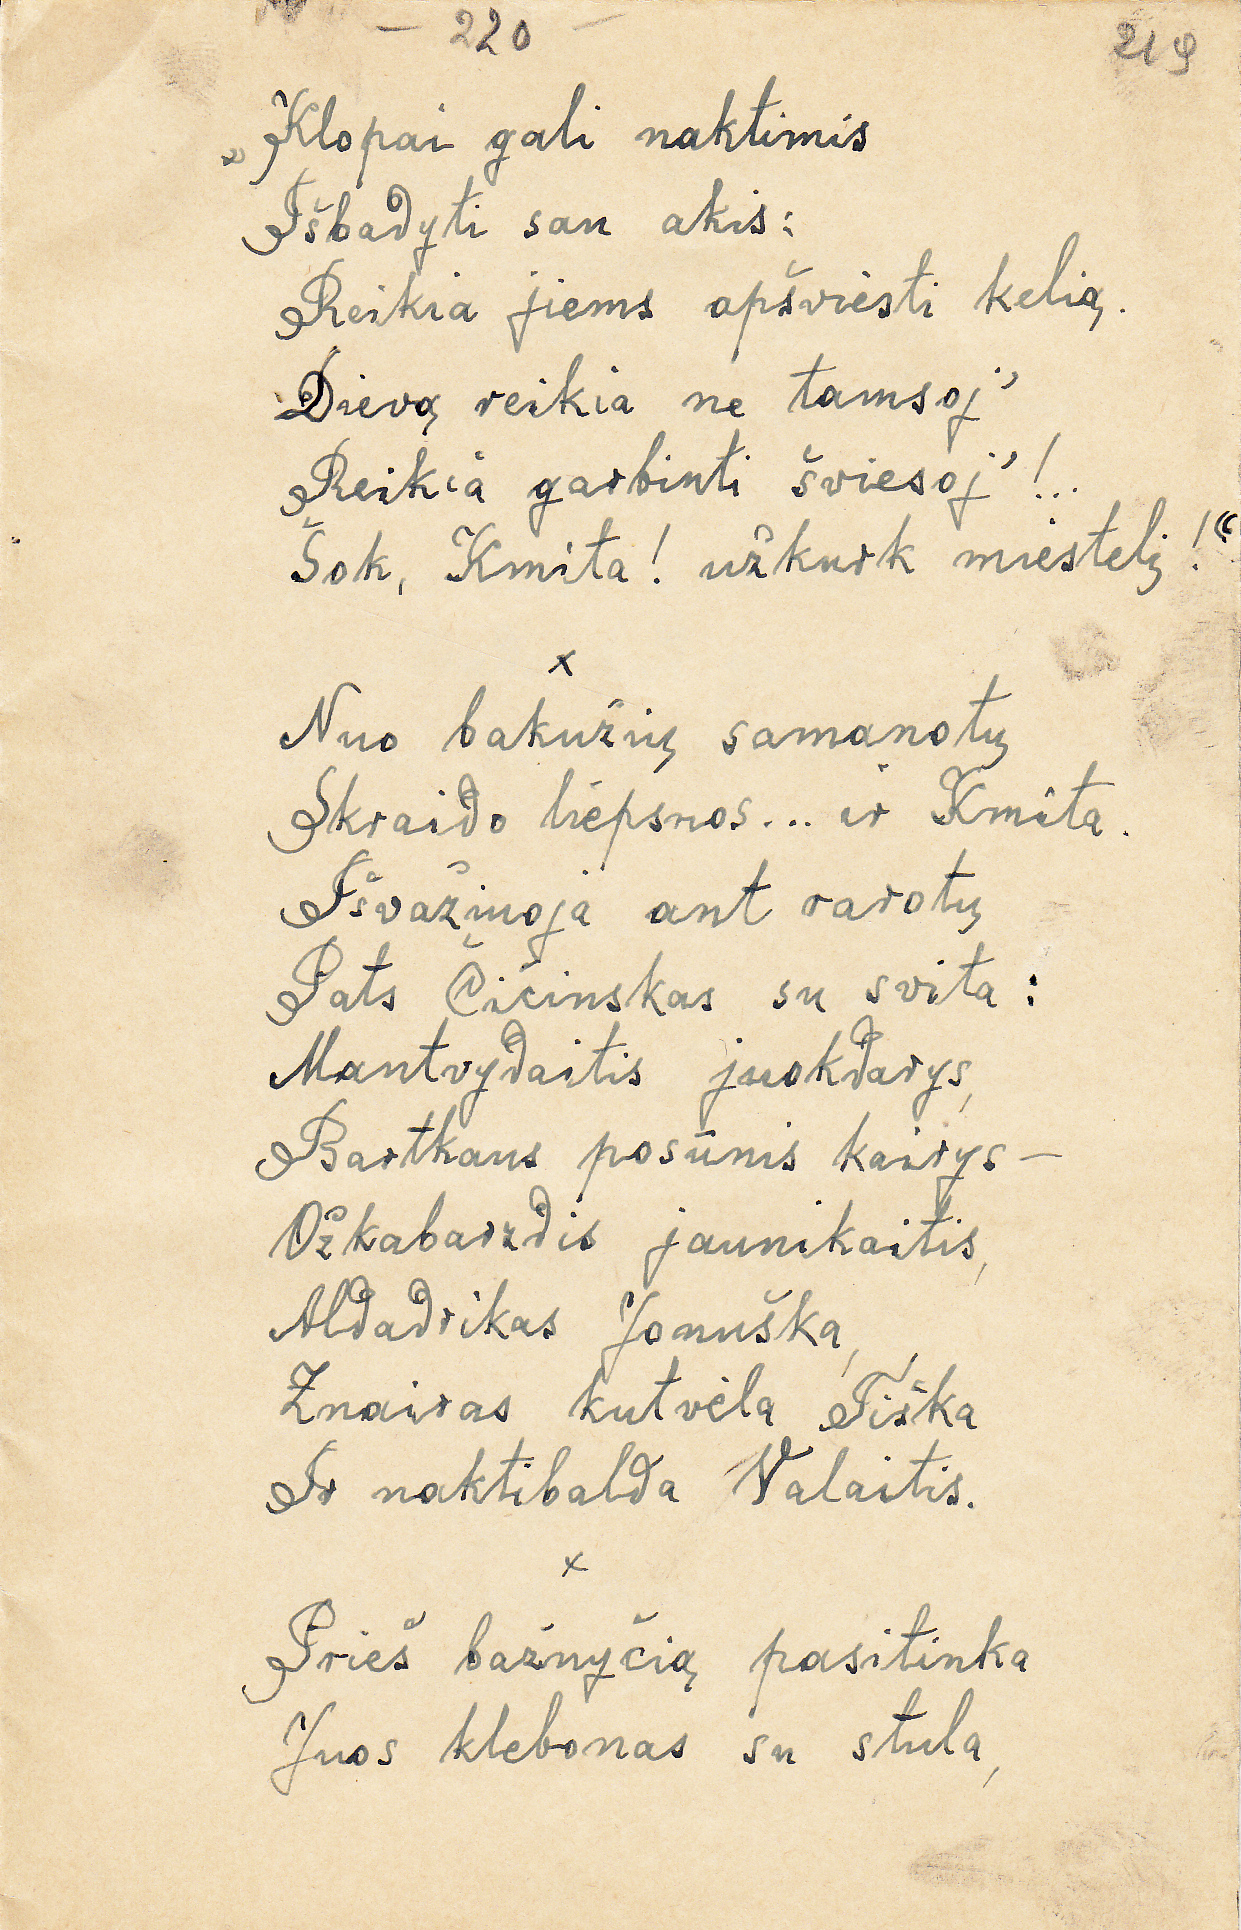 — 220 —
219
„Klopai gali naktimis
Išbadyti sau akis:
Reikia jiems apšviesti kelią.
Dievą reikia ne tamsoj’
Reikia garbinti šviesoj’!...
Šok, Kmita! užkurk miestelį!“
x
Nuo bakužių samanotų
Skraido liepsnos... ir Kmita.
Išvažiuoja ant rarotų
Pats Čičinskas su svita:
Mantvydaitis juokdarys,
Bartkaus posūnis kairys —
Ožkabarzdis jaunikaitis,
Aldadrikas Jonuška,
Žnairas kutvėla Tiška
Ir naktibalda Valaitis.
x
Prieš bažnyčią pasitinka
Juos klebonas su stula,